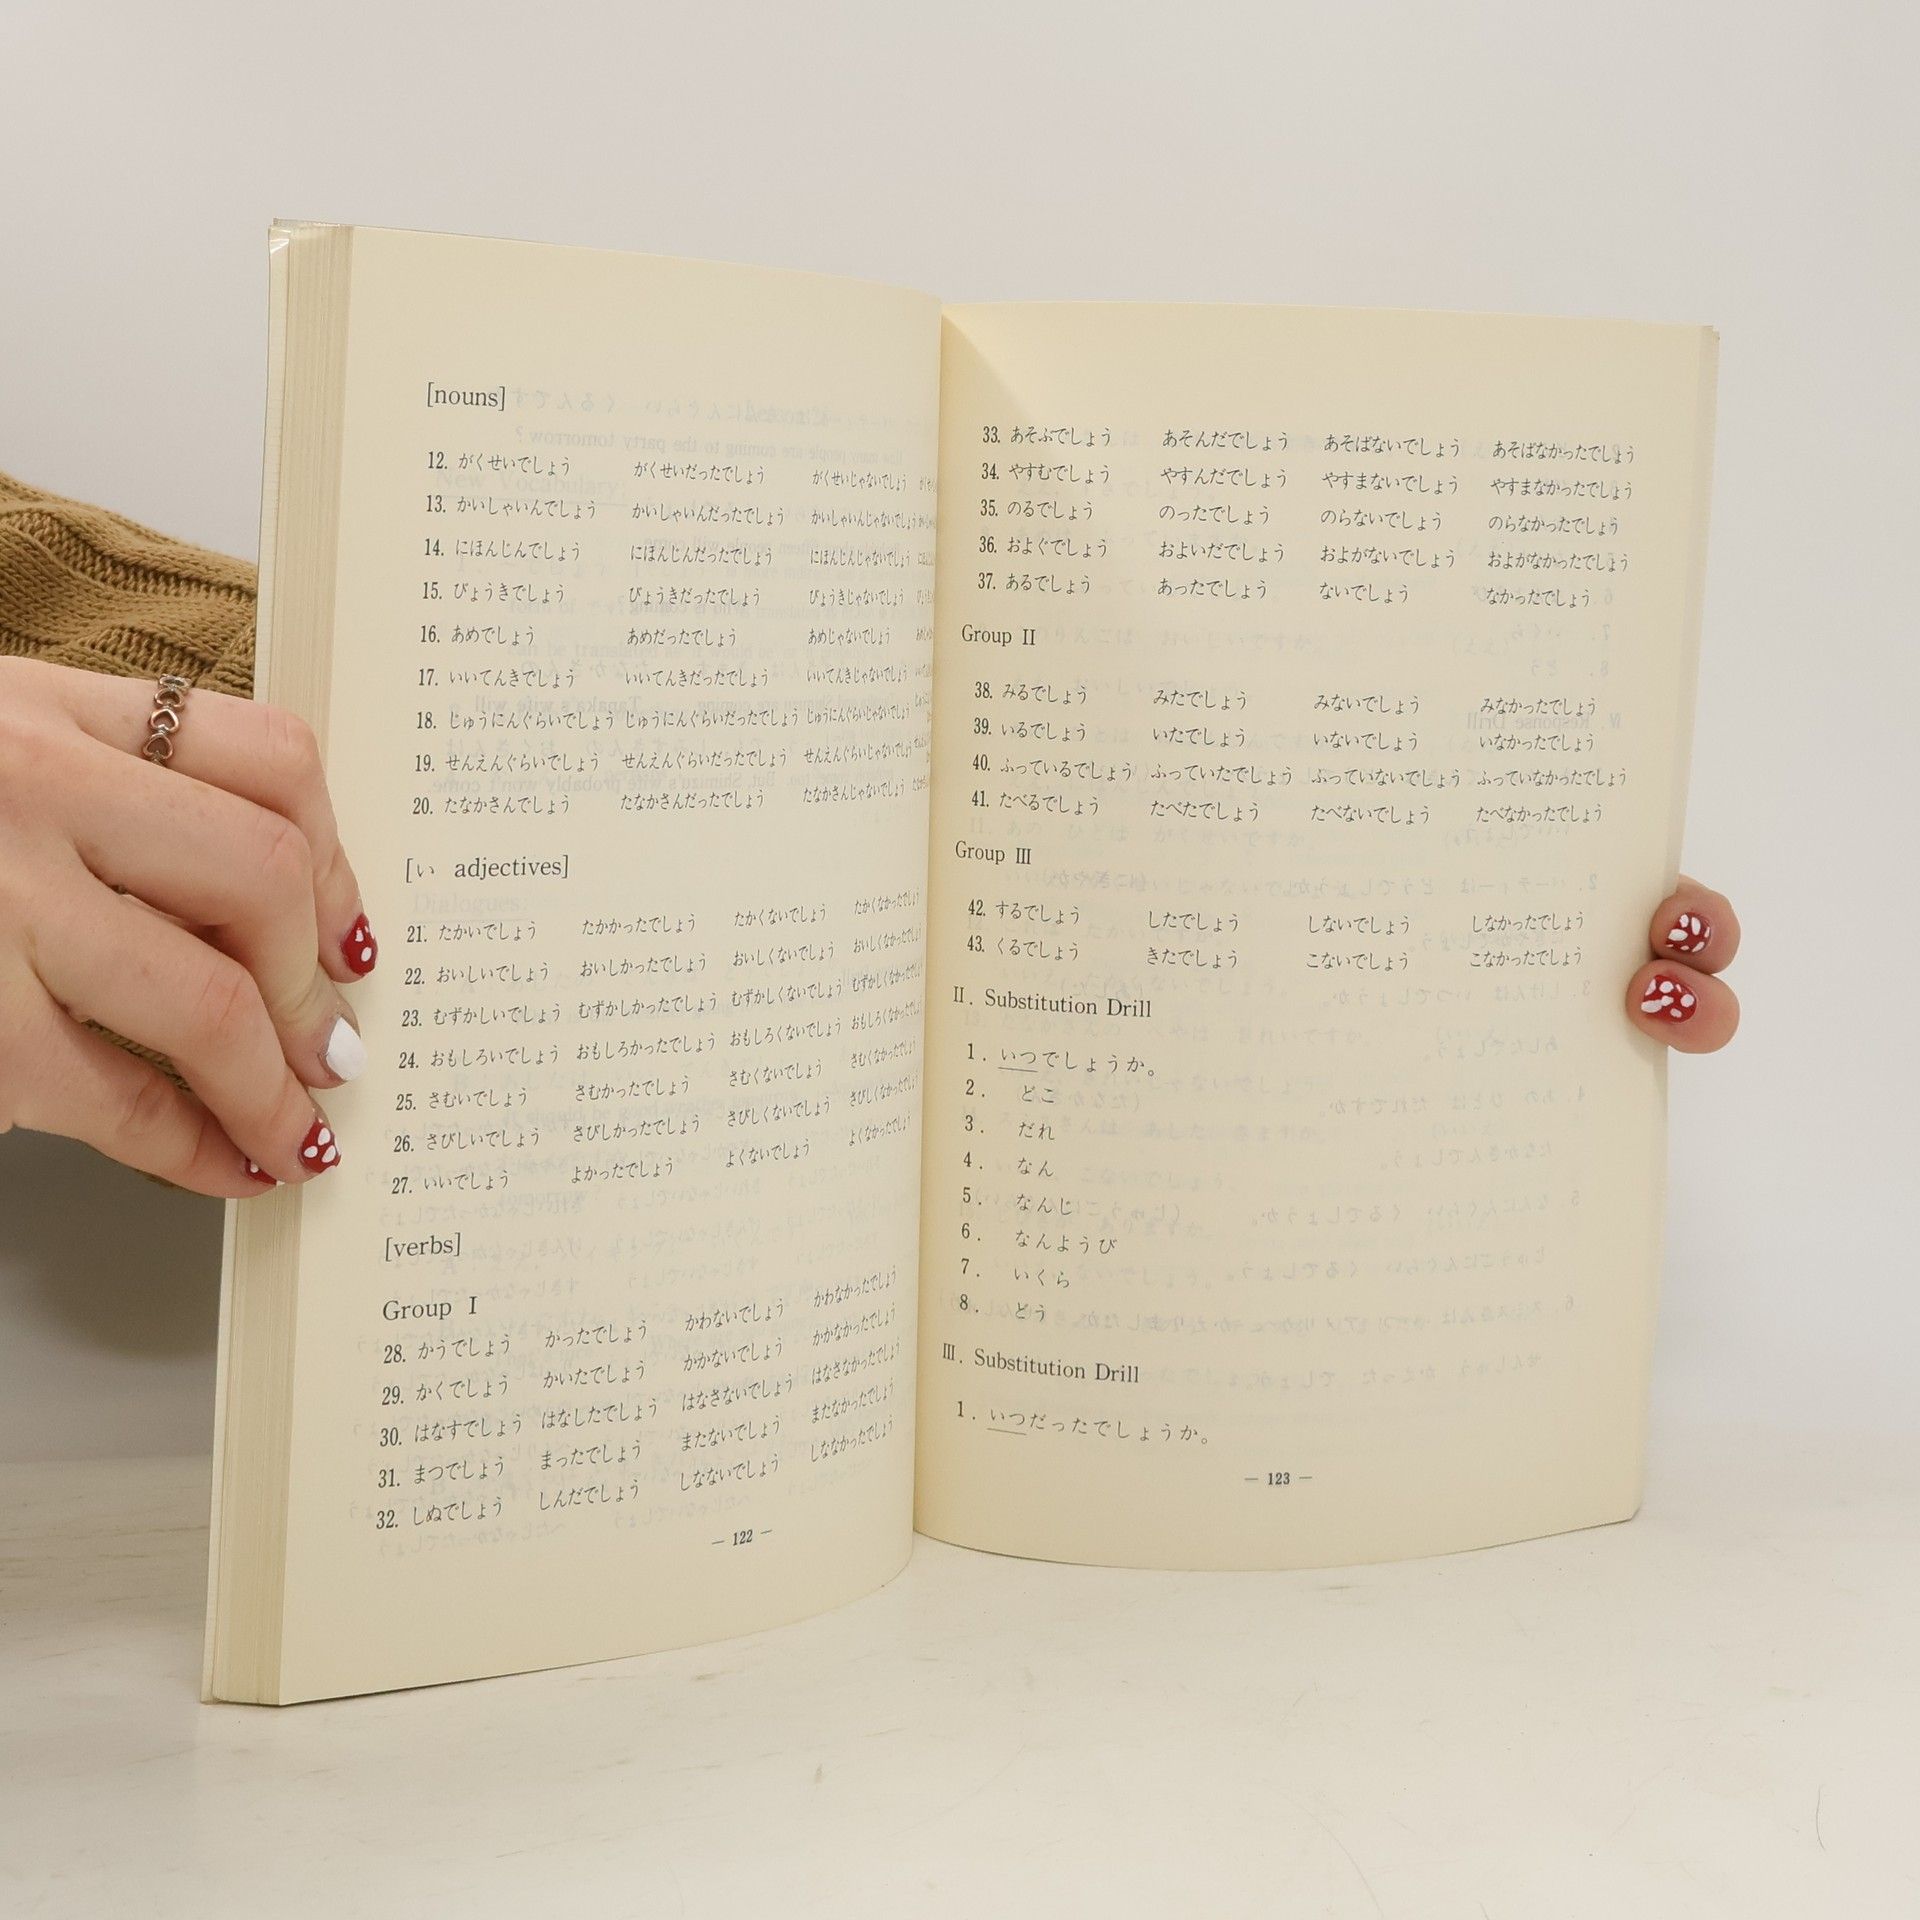 [nouns]
12. がくせいでしょう がくせいだったでしょう がくせいじゃないでしょう
13. かいしゃいんでしょう かいしゃいんだったでしょう かいしゃいんじゃないでしょう
14. にほんじんでしょう にほんじんだったでしょう にほんじんじゃないでしょう
15. びょうきでしょう びょうきだったでしょう びょうきじゃないでしょう
16. あめでしょう あめだったでしょう あめじゃないでしょう
17. いいてんきでしょう いいてんきだったでしょう いいてんきじゃないでしょう
18. じゅうにんぐらいでしょう じゅうにんぐらいだったでしょう じゅうにんぐらいじゃないでしょう
19. せんえんぐらいでしょう せんえんぐらいだったでしょう せんえんぐらいじゃないでしょう
20. たなかさんでしょう たなかさんだったでしょう たなかさんじゃないでしょう
[い adjectives]
21. たかいでしょう たかかったでしょう たかくないでしょう たかくなかったでしょう
22. おいしいでしょう おいしかったでしょう おいしくないでしょう おいしくなかったでしょう
23. むずかしいでしょう むずかしかったでしょう むずかしくないでしょう むずかしくなかったでしょう
24. おもしろいでしょう おもしろかったでしょう おもしろくないでしょう おもしろくなかったでしょう
25. さむいでしょう さむかったでしょう さむくないでしょう さむくなかったでしょう
26. さびしいでしょう さびしかったでしょう さびしくないでしょう さびしくなかったでしょう
27. いいでしょう よかったでしょう よくないでしょう よくなかったでしょう
[verbs]
Group I
28. かうでしょう かったでしょう かわないでしょう かわなかったでしょう
29. かくでしょう かいたでしょう かかないでしょう かかなかったでしょう
30. はなすでしょう はなしたでしょう はなさないでしょう はなさなかったでしょう
31. まつでしょう まったでしょう またないでしょう またなかったでしょう
32. しぬでしょう しんだでしょう しなないでしょう しななかったでしょう
— 122 —
33. あそぶでしょう あそんだでしょう あそばないでしょう あそばなかったでしょう
34. やすむでしょう やすんだでしょう やすまないでしょう やすまなかったでしょう
35. のるでしょう のったでしょう のらないでしょう のらなかったでしょう
36. およぐでしょう およいだでしょう およがないでしょう およがなかったでしょう
37. あるでしょう あったでしょう ないでしょう なかったでしょう
Group II
38. みるでしょう みたでしょう みないでしょう みなかったでしょう
39. いるでしょう いたでしょう いないでしょう いなかったでしょう
40. ふっているでしょう ふっていたでしょう ふっていないでしょう ふっていなかったでしょう
41. たべるでしょう たべたでしょう たべないでしょう たべなかったでしょう
Group III
42. するでしょう したでしょう しないでしょう しなかったでしょう
43. くるでしょう きたでしょう こないでしょう こなかったでしょう
II. Substitution Drill
1. いつでしょうか。
2. どこ
3. だれ
4. なん
5. なんじ
6. なんようび
7. いくら
8. どう
III. Substitution Drill
1. いつだったでしょうか。
— 123 —